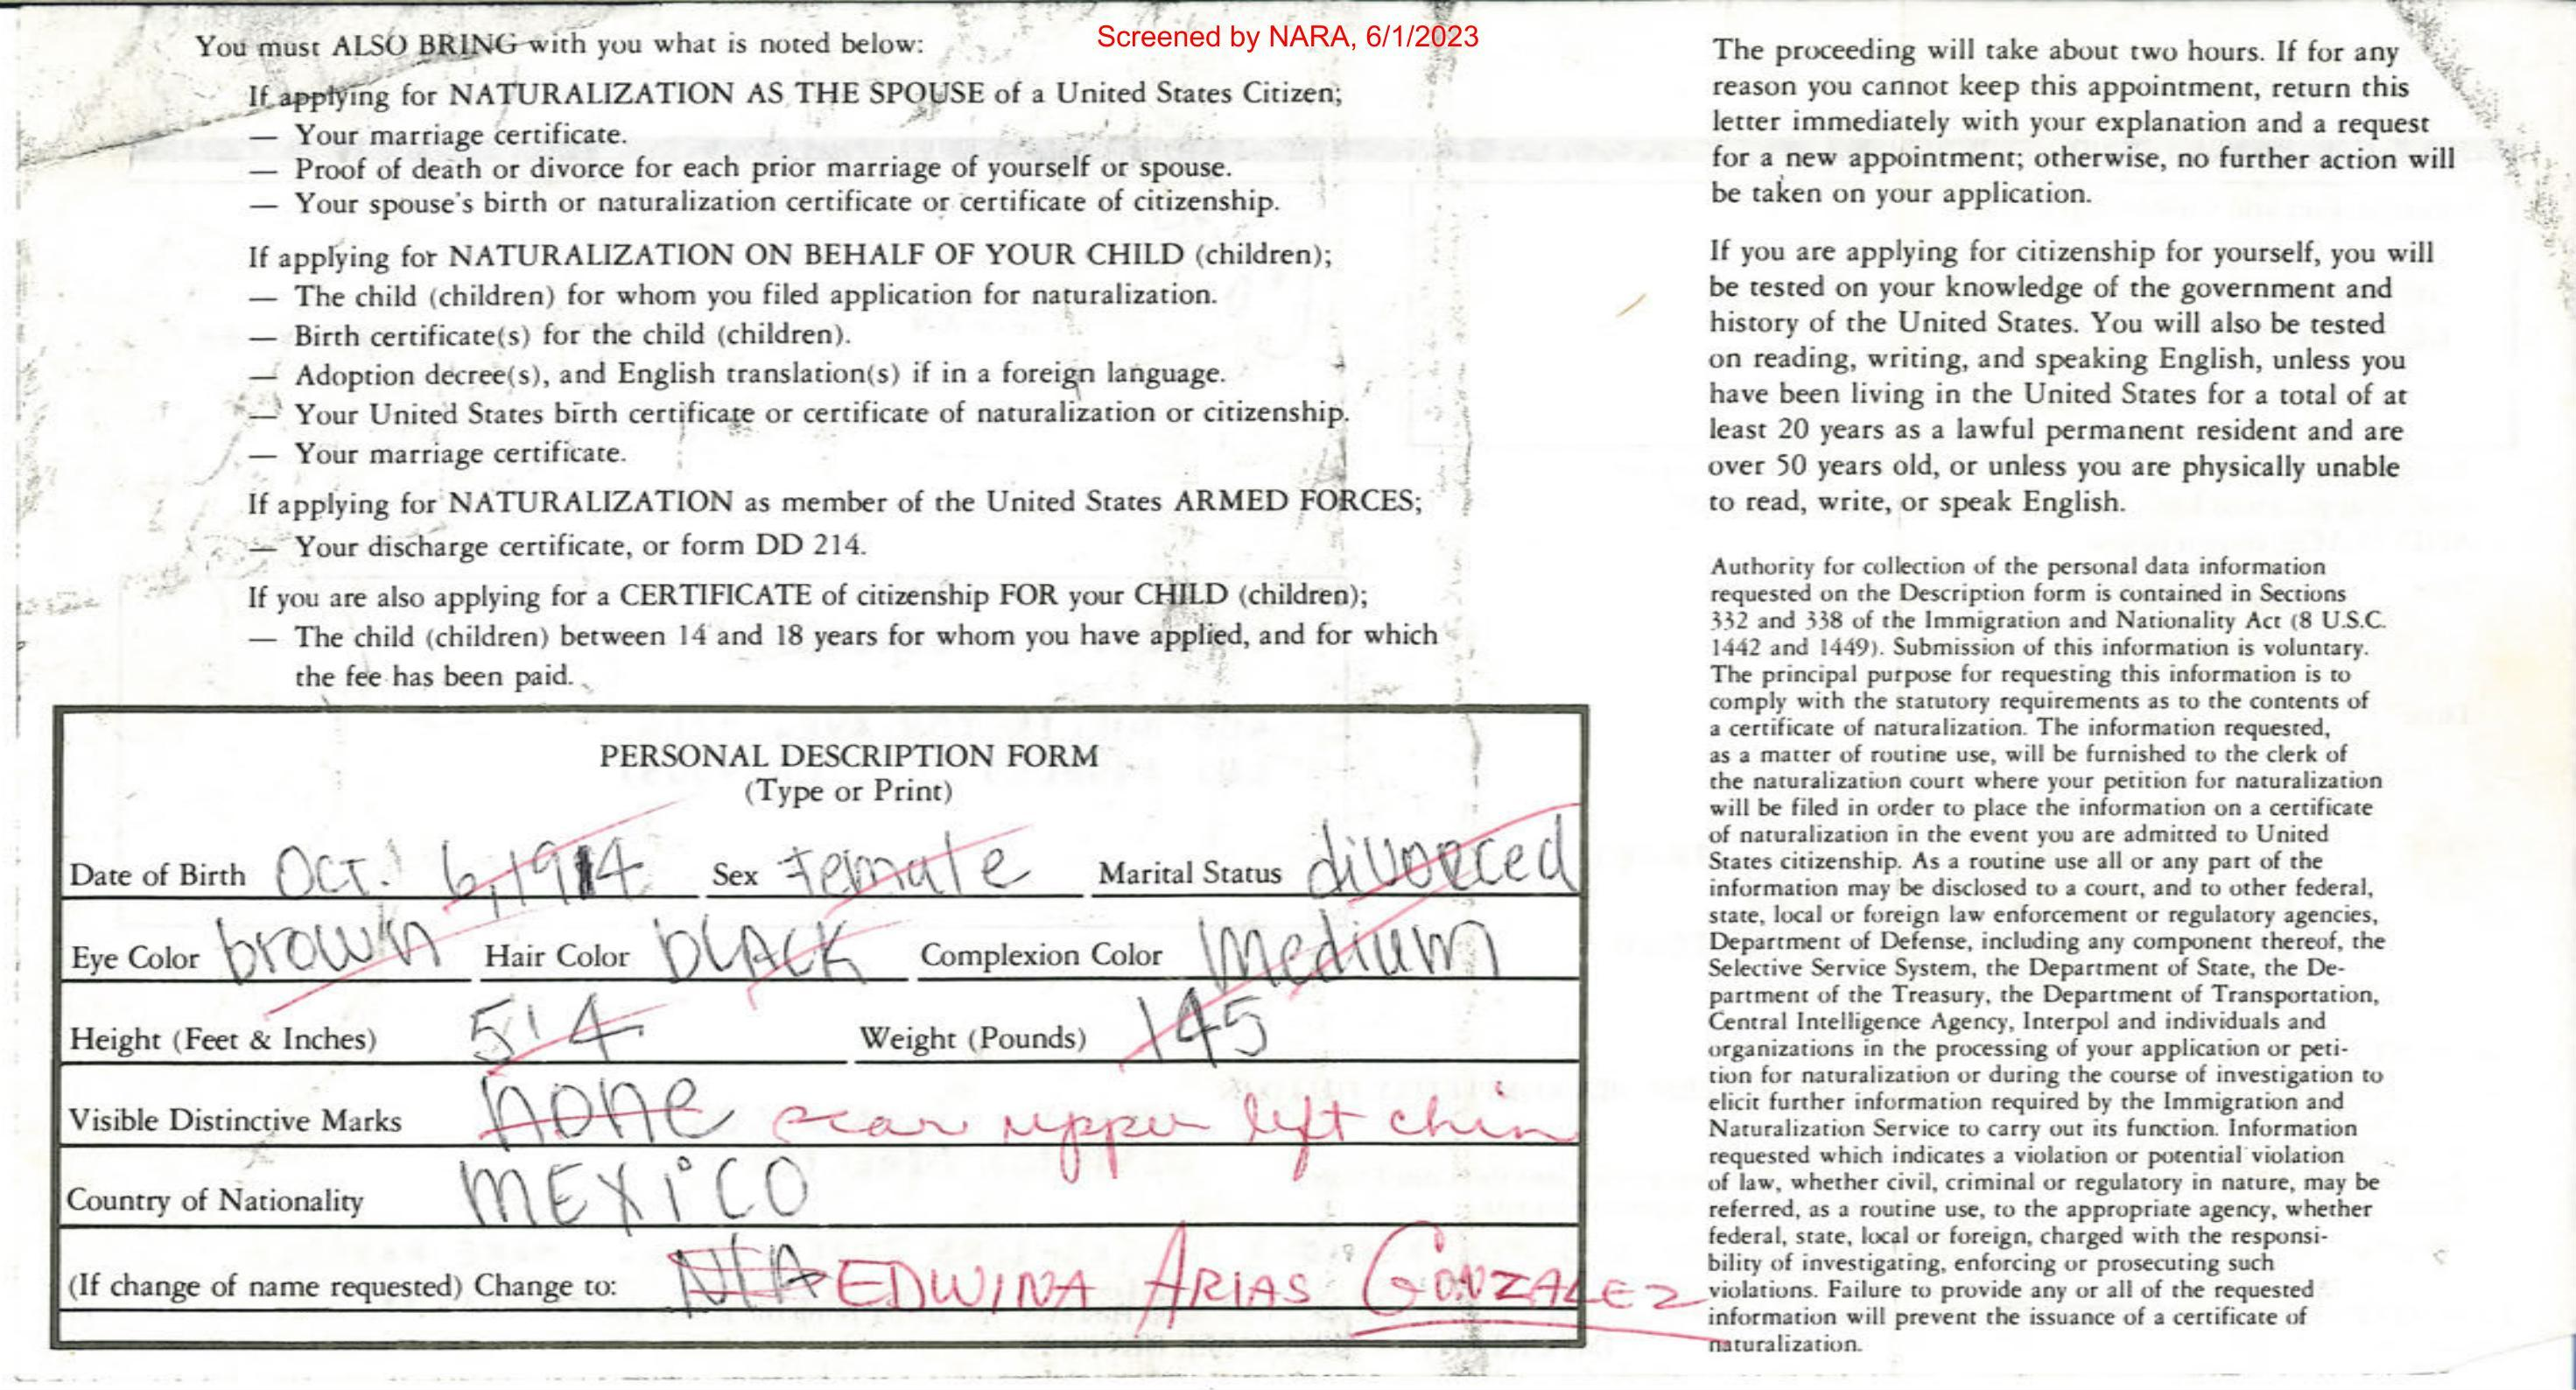 Screened by NARA, 6/1/2023
You must ALSO BRING with you what is noted below:
If applying for NATURALIZATION AS THE SPOUSE of a United States Citizen;
— Your marriage certificate.
— Proof of death or divorce for each prior marriage of yourself or spouse.
— Your spouse's birth or naturalization certificate or certificate of citizenship.
If applying for NATURALIZATION ON BEHALF OF YOUR CHILD (children);
— The child (children) for whom you filed application for naturalization.
— Birth certificate(s) for the child (children).
— Adoption decree(s), and English translation(s) if in a foreign language.
— Your United States birth certificate or certificate of naturalization or citizenship.
— Your marriage certificate.
If applying for NATURALIZATION as member of the United States ARMED FORCES;
— Your discharge certificate, or form DD 214.
If you are also applying for a CERTIFICATE of citizenship FOR your CHILD (children);
— The child (children) between 14 and 18 years for whom you have applied, and for which
the fee has been paid.
PERSONAL DESCRIPTION FORM
(Type or Print)
Date of Birth Oct. 6, 1914 Sex Female Marital Status divorced
Eye Color brown Hair Color bLACK Complexion Color Medium
Height (Feet & Inches) 5'4 Weight (Pounds) 145
Visible Distinctive Marks none scar upper left chin
Country of Nationality MEXiCO
(If change of name requested) Change to: N/A EDWINA ARIAS GONZALEZ
The proceeding will take about two hours. If for any
reason you cannot keep this appointment, return this
letter immediately with your explanation and a request
for a new appointment; otherwise, no further action will
be taken on your application.
If you are applying for citizenship for yourself, you will
be tested on your knowledge of the government and
history of the United States. You will also be tested
on reading, writing, and speaking English, unless you
have been living in the United States for a total of at
least 20 years as a lawful permanent resident and are
over 50 years old, or unless you are physically unable
to read, write, or speak English.
Authority for collection of the personal data information
requested on the Description form is contained in Sections
332 and 338 of the Immigration and Nationality Act (8 U.S.C.
1442 and 1449). Submission of this information is voluntary.
The principal purpose for requesting this information is to
comply with the statutory requirements as to the contents of
a certificate of naturalization. The information requested,
as a matter of routine use, will be furnished to the clerk of
the naturalization court where your petition for naturalization
will be filed in order to place the information on a certificate
of naturalization in the event you are admitted to United
States citizenship. As a routine use all or any part of the
information may be disclosed to a court, and to other federal,
state, local or foreign law enforcement or regulatory agencies,
Department of Defense, including any component thereof, the
Selective Service System, the Department of State, the De-
partment of the Treasury, the Department of Transportation,
Central Intelligence Agency, Interpol and individuals and
organizations in the processing of your application or peti-
tion for naturalization or during the course of investigation to
elicit further information required by the Immigration and
Naturalization Service to carry out its function. Information
requested which indicates a violation or potential violation
of law, whether civil, criminal or regulatory in nature, may be
referred, as a routine use, to the appropriate agency, whether
federal, state, local or foreign, charged with the responsi-
bility of investigating, enforcing or prosecuting such
violations. Failure to provide any or all of the requested
information will prevent the issuance of a certificate of
naturalization.